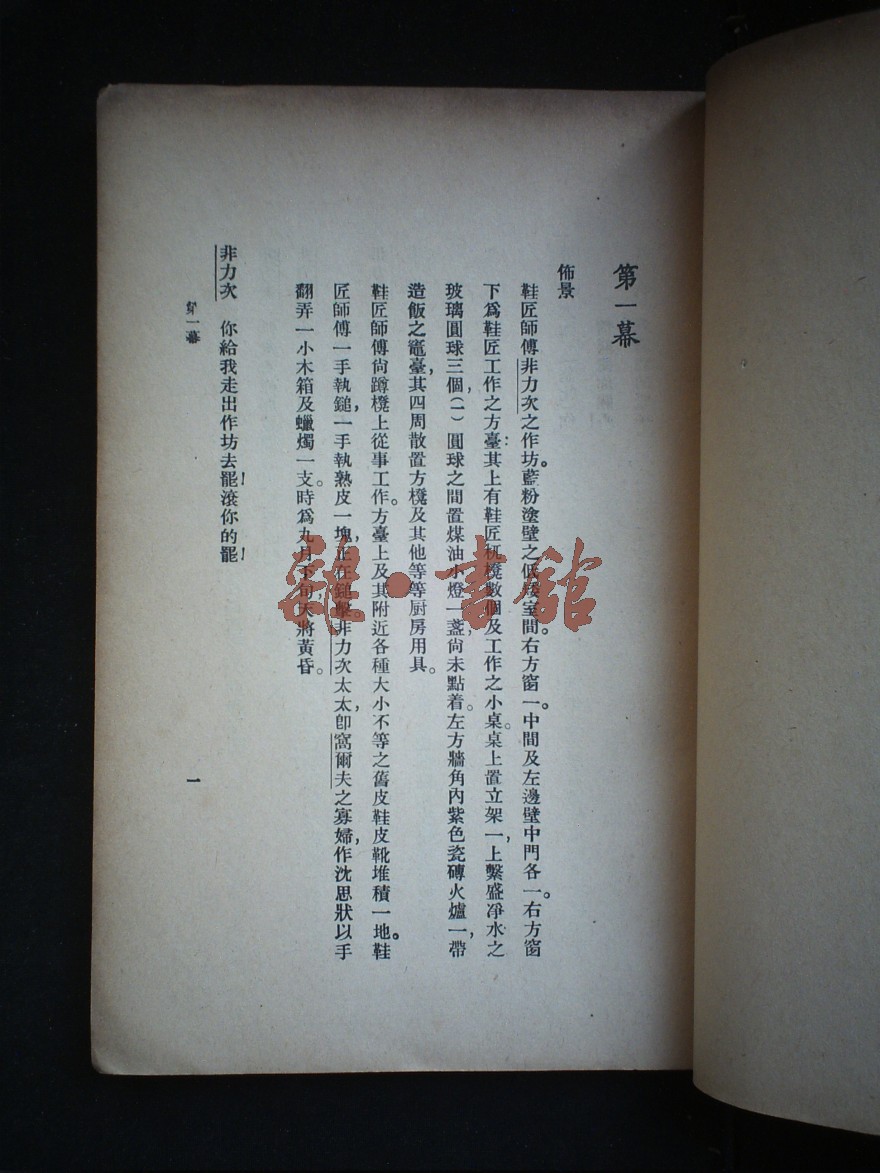 第一幕
佈景
鞋匠師傅非力次之作坊。藍粉塗壁之低矮室間。右方窗一。中間及左邊壁中門各一。右方窗
下爲鞋匠工作之方臺：其上有鞋匠杌櫈數個及工作之小桌。桌上置立架一，上繫盛凈水之
玻璃圓球三個（一）圓球之間置煤油小燈一盞，尙未點着。左方牆角內紫色瓷磚火爐一，帶
造飯之竈臺，其四周散置方櫈及其他等等厨房用具。
鞋匠師傅尙蹲櫈上從事工作。方臺上及其附近各種大小不等之舊皮鞋皮靴堆積一地。鞋
匠師傅一手執鎚，一手執熟皮一塊，正在鎚擊。非力次太太，卽窩爾夫之寡婦，作沈思狀以手
翻弄一小木箱及蠟燭一支。時爲九月下旬，天將黃昏。
非力次　你給我走出作坊去罷！滾你的罷！
第一幕
一
雜·書館